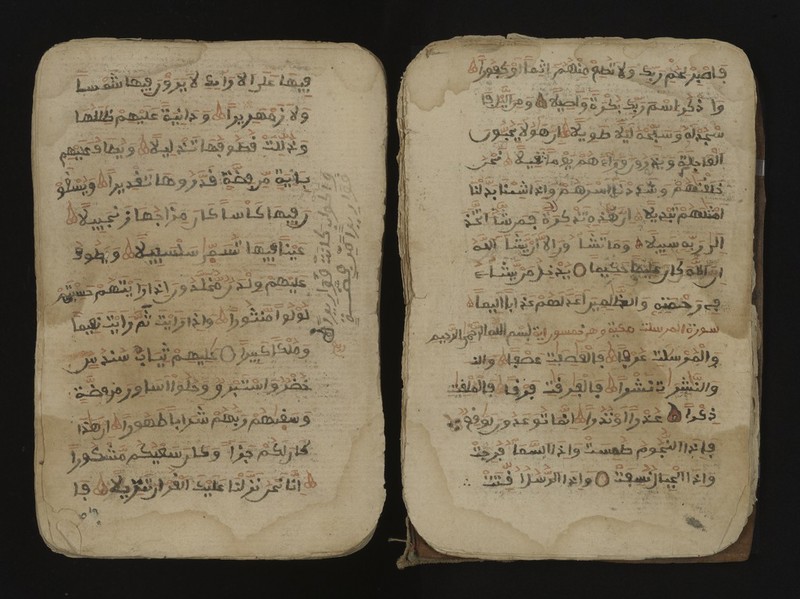 فيها على الارايك لا يرون فيها شمسا
ولا زمهريرا ودانية عليهم ظللها
وذللت قطوفها تذليلا ويطاف عليهم
بانية من فضة قدروها تقديرا ويسقو
ن فيها كاسا كان مزاجها زنجبيلا
عينا فيها تسمى سلسبيلا ويطوف
عليهم ولدن مخلدون اذا رايتهم حسبتهم
لؤلؤا منثورا واذا رايت ثم رايت نعيما
وملكا كبيرا عليهم ثياب سندس
خضر واستبرق وحلوا اساور من فضة
وسقيهم ربهم شرابا طهورا ان هذا
كان لكم جزاء وكان سعيكم مشكورا
انا نحن نزلنا عليك القران تنزيلا فا
واكواب كانت قواريرا
قواريرا من فضة
فاصبر لحكم ربك ولا تطع منهم اثما او كفورا
واذكر اسم ربك بكرة واصيلا ومن اليل فا
سجد له وسبحه ليلا طويلا ان هؤلاء يحبون
العاجلة ويذرون وراءهم يوما ثقيلا نحن
خلقنهم وشددنا اسرهم واذا شئنا بدلنا
امثلهم تبديلا ان هذه تذكرة فمن شا اتخذ
الى ربه سبيلا وما تشاءون الا ان يشا الله
ان الله كان عليما حكيما يدخل من يشاء
في رحمته والظلمين اعد لهم عذابا اليما
سورة المرسلت مكية وهي خمسون اية بسم الله الرحمن الرحيم
والمرسلت عرفا فالعصفت عصفا والنـ
والنشرت نشرا فالفرقت فرقا فالملقيت
ذكرا عذرا او نذرا انما توعدون لوقع
فاذا النجوم طمست واذا السما فرجت
واذا الجبال نسفت واذا الرسل اقتت